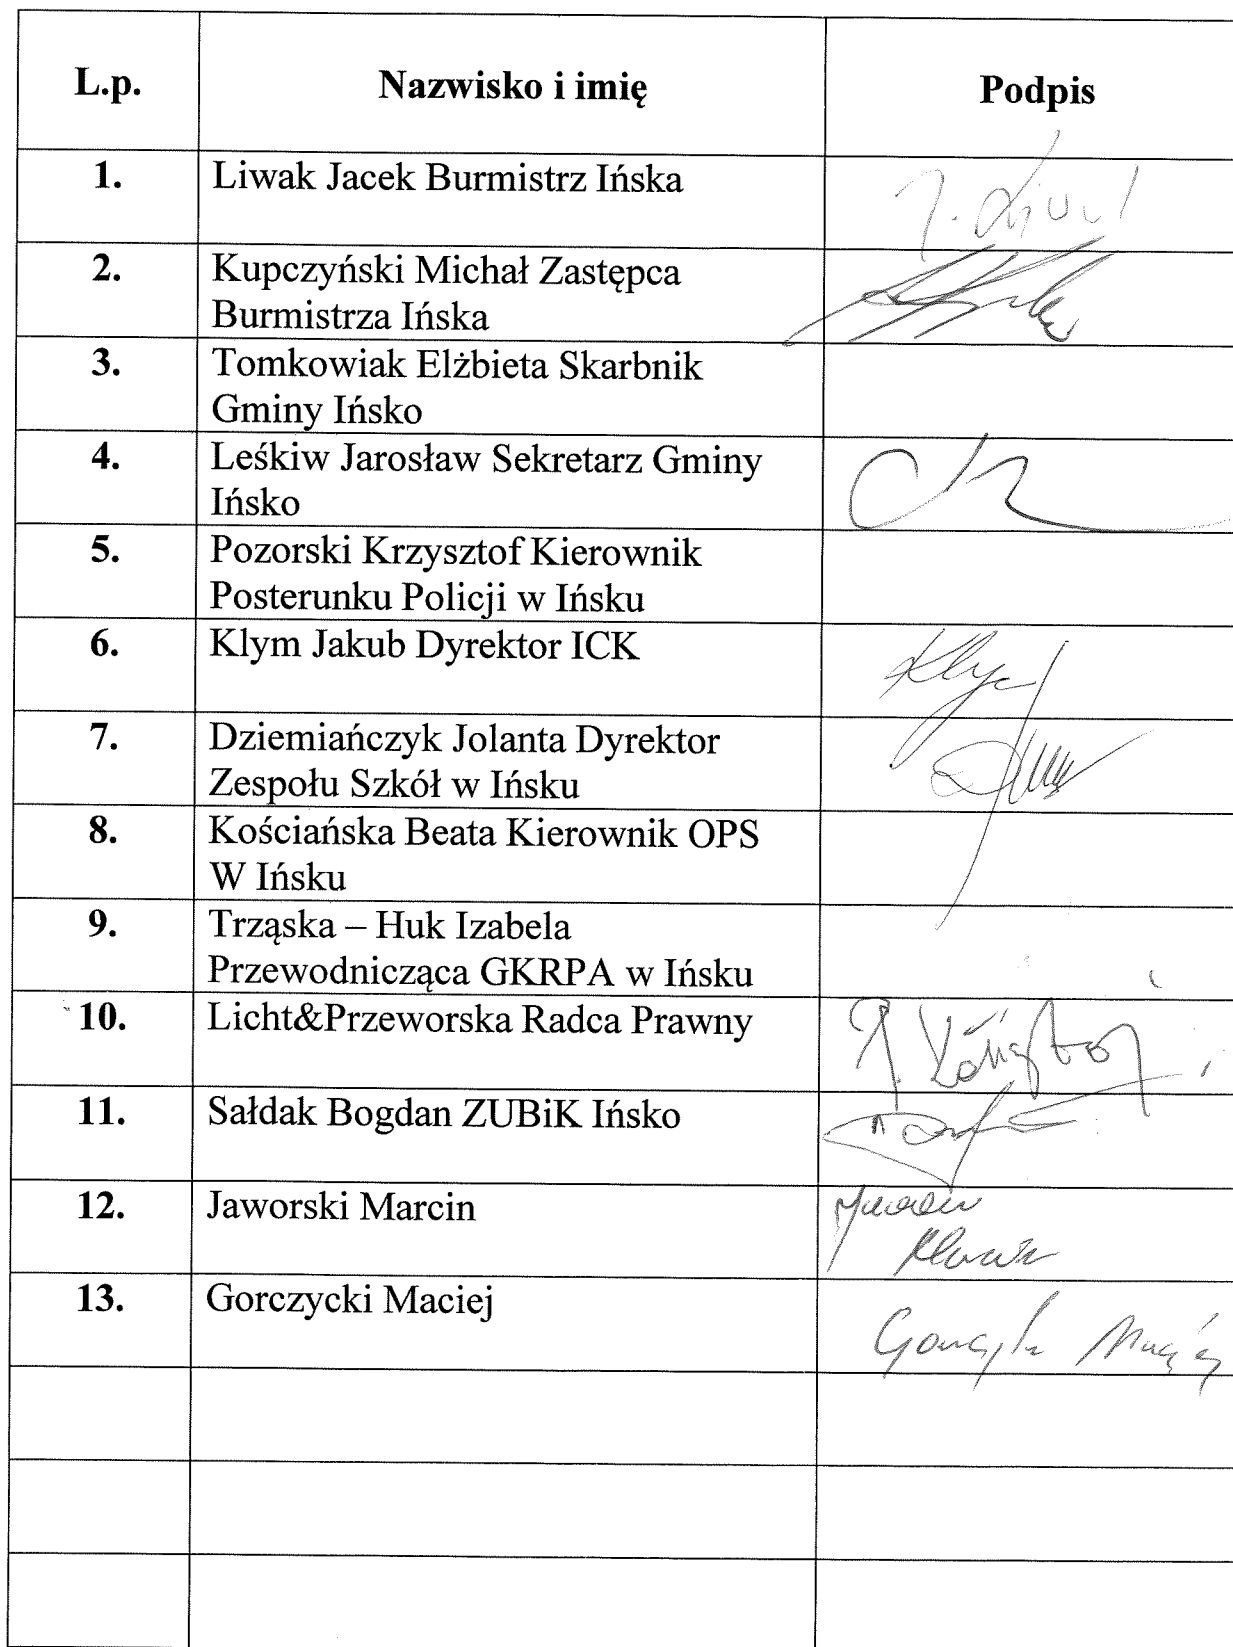 L.p. Nazwisko i imię Podpis
1. Liwak Jacek Burmistrz Ińska
2. Kupczyński Michał Zastępca
Burmistrza Ińska
3. Tomkowiak Elżbieta Skarbnik
Gminy Ińsko
4. Leśkiw Jarosław Sekretarz Gminy
Ińsko
5. Pozorski Krzysztof Kierownik
Posterunku Policji w Ińsku
6. Klym Jakub Dyrektor ICK
7. Dziemiańczyk Jolanta Dyrektor
Zespołu Szkół w Ińsku
8. Kościańska Beata Kierownik OPS
W Ińsku
9. Trząska – Huk Izabela
Przewodnicząca GKRPA w Ińsku
10. Licht&Przeworska Radca Prawny
11. Sałdak Bogdan ZUBiK Ińsko
12. Jaworski Marcin
13. Gorczycki Maciej